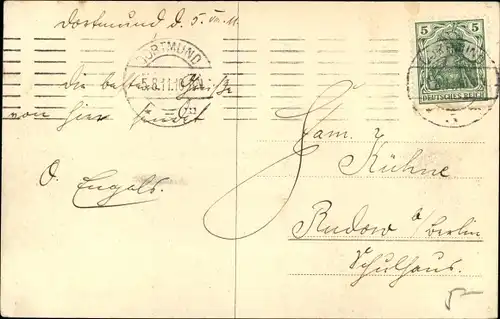 Dortmund d. 5. VIII. 11
DORTMUND
5.8.11.10
die besten Grüße
von hier sendet
O. Engels.
5 5
DEUTSCHES REICH
Fam.
Kühne
Rudow b/Berlin
Schulhaus.